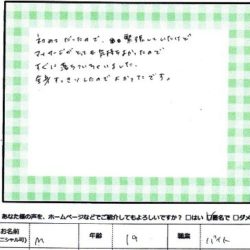 初めてだったので、緊張していたけど
マッサージがとても気持ちよかったので
すぐに落ちついちゃいました。
全身すっきりしたのでよかったです。
あなた様の声を、ホームページなどでご紹介してもよろしいですか？ □はい ☑匿名で □ダメ
お名前
ニシャル可) M 年齢 19 職業 バイト